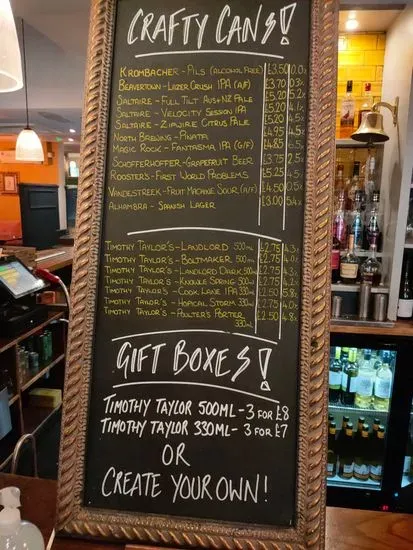 CRAFTY CANS!
KROMBACHER - PILS (ALCOHOL FREE) £3.50 0.0%
BEAVERTOWN - LAZER CRUSH IPA (A/F) £3.70 0.3%
SALTAIRE - FULL TILT AUS+NZ PALE £5.20
SALTAIRE - VELOCITY SESSION IPA £5.20
SALTAIRE - ZIPWIRE CITRUS PALE £5.20
NORTH BREWING - PIÑATA £4.95 4.5%
MAGIC ROCK - FANTASMA IPA (G/F) £4.85 6.5%
SCHOFFERHOFFER - GRAPEFRUIT BEER £3.75 2.5%
ROOSTER'S - FIRST WORLD PROBLEMS £5.25
VANDESTREEK - FRUIT MACHINE SOUR (A/F) £4.50 0.5%
ALHAMBRA - SPANISH LAGER £3.00 5.4%
TIMOTHY TAYLOR'S - LANDLORD 500ML £2.75 4.3%
TIMOTHY TAYLOR'S - BOLTMAKER 500ML £2.75
TIMOTHY TAYLOR'S - LANDLORD DARK 500ML £2.75
TIMOTHY TAYLOR'S - KNOWLE SPRING 500ML £2.75
TIMOTHY TAYLOR'S - COOK LANE IPA 330ML £2.50 5.8%
TIMOTHY TAYLOR'S - HOPICAL STORM 330ML £2.75 4.0%
TIMOTHY TAYLOR'S - POULTER'S PORTER 330ML £2.50 4.8%
GIFT BOXES!
TIMOTHY TAYLOR 500ML - 3 FOR £8
TIMOTHY TAYLOR 330ML - 3 FOR £7
OR
CREATE YOUR OWN!